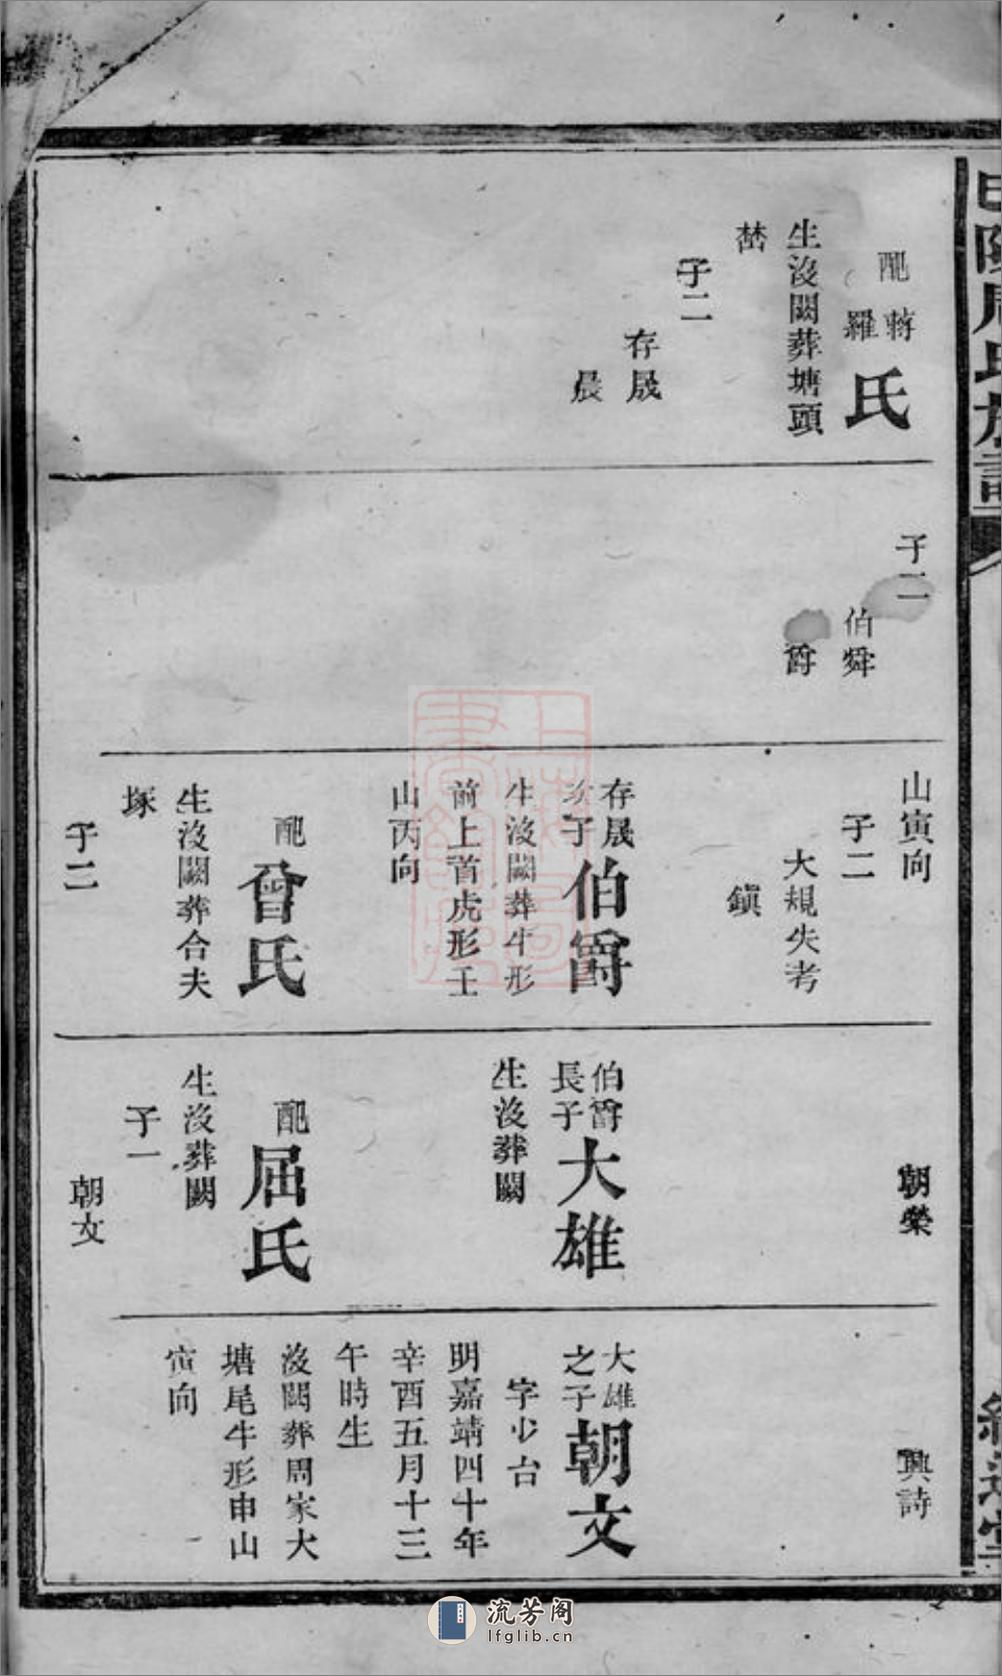 配蔣羅氏
生沒闕葬塘頭
子二
存晟
晨
子二
伯舜
爵
山寅向
子二
大規失考
鎮
存晟次子伯爵
生沒闕葬牛形
前上首虎形壬
山丙向
配曾氏
生沒闕葬合夫
塚
子二
朝榮
伯爵長子大雄
生沒葬闕
配屈氏
生沒葬闕
子一
朝文
興詩
大雄之子朝文
字少台
明嘉靖四十年
辛酉五月十三
午時生
沒闕葬周家大
塘尾牛形申山
寅向
流芳阁
lfglib.cn